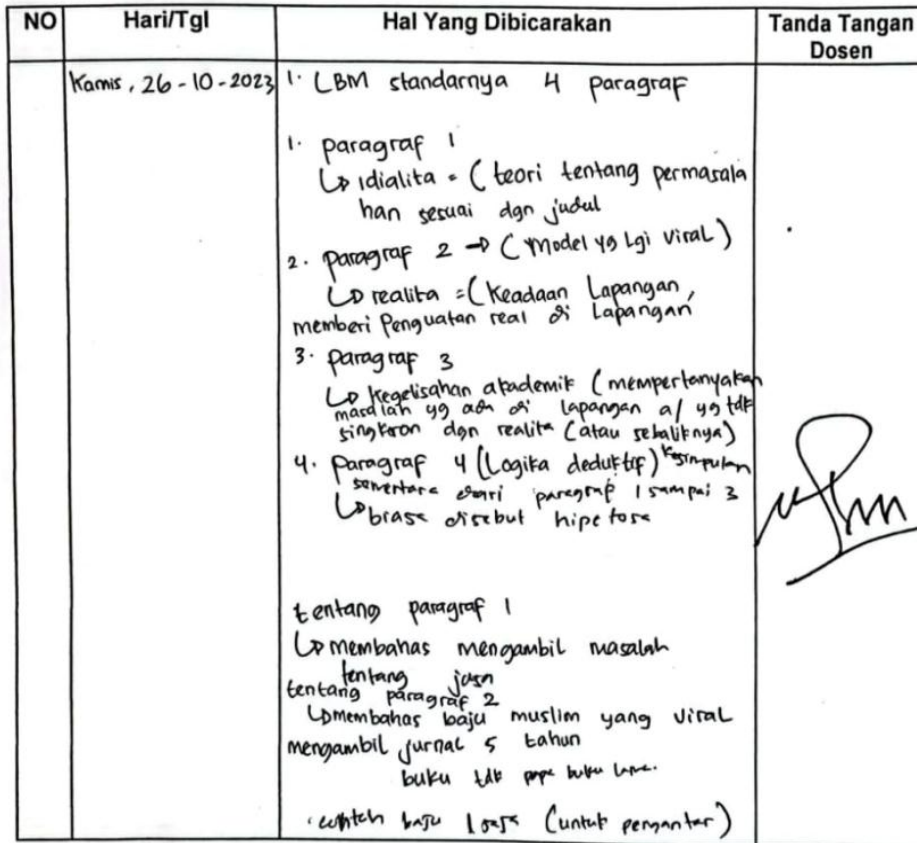 NO Hari/Tgl Hal Yang Dibicarakan Tanda Tangan Dosen
Kamis, 26-10-2023
1. LBM standarnya 4 paragraf
1. paragraf 1
↳ idialita = (teori tentang permasala
han sesuai dgn judul
2. paragraf 2 → (Model yg Lgi viral)
↳ realita = (Keadaan Lapangan,
memberi Penguatan real di Lapangan
3. paragraf 3
↳ kegelisahan akademik (mempertanyakan
masalah yg ada di lapangan a/ yg tdk
singkron dgn realita (atau sebaliknya)
4. paragraf 4 (Logika deduktif) kesimpulan
sementara dari paragraf 1 sampai 3
↳ biasa disebut hipotosa
tentang paragraf 1
↳ membahas mengambil masalah
tentang jasa
tentang paragraf 2
↳ membahas baju muslim yang viral
mengambil jurnal 5 tahun
buku tdk pape buku lama.
contoh baju 1 saja (untuk pengantar)